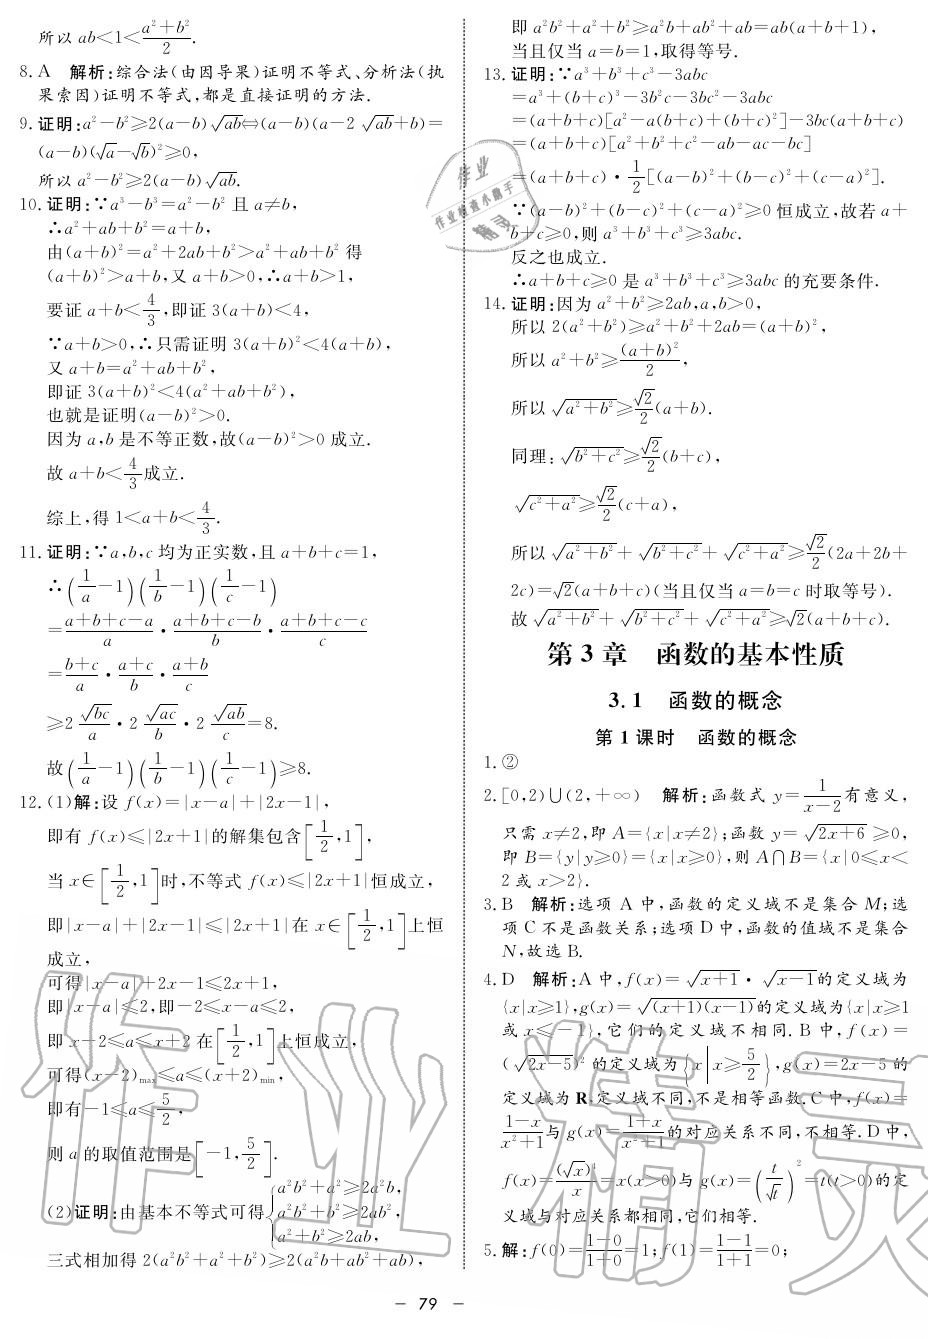 所以 ab<1<(a²+b²)/2.
8. A　解析:综合法(由因导果)证明不等式、分析法(执
果索因)证明不等式,都是直接证明的方法.
9. 证明:a²-b²≥2(a-b)√ab⇔(a-b)(a-2√ab+b)=
(a-b)(√a-√b)²≥0,
所以 a²-b²≥2(a-b)√ab.
10. 证明:∵a³-b³=a²-b² 且 a≠b,
∴a²+ab+b²=a+b,
由(a+b)²=a²+2ab+b²>a²+ab+b² 得
(a+b)²>a+b,又 a+b>0,∴a+b>1,
要证 a+b<4/3,即证 3(a+b)<4,
∵a+b>0,∴只需证明 3(a+b)²<4(a+b),
又 a+b=a²+ab+b²,
即证 3(a+b)²<4(a²+ab+b²),
也就是证明(a-b)²>0.
因为 a,b 是不等正数,故(a-b)²>0 成立.
故 a+b<4/3成立.
综上,得 1<a+b<4/3.
11. 证明:∵a,b,c 均为正实数,且 a+b+c=1,
∴(1/a-1)(1/b-1)(1/c-1)
=(a+b+c-a)/a·(a+b+c-b)/b·(a+b+c-c)/c
=(b+c)/a·(a+c)/b·(a+b)/c
≥2 √bc/a·2 √ac/b·2 √ab/c=8.
故(1/a-1)(1/b-1)(1/c-1)≥8.
12. (1)解:设 f(x)=|x-a|+|2x-1|,
即有 f(x)≤|2x+1|的解集包含[1/2,1],
当 x∈[1/2,1]时,不等式 f(x)≤|2x+1|恒成立,
即|x-a|+|2x-1|≤|2x+1|在 x∈[1/2,1]上恒
成立,
可得|x-a|+2x-1≤2x+1,
即|x-a|≤2,即-2≤x-a≤2,
即 x-2≤a≤x+2 在[1/2,1]上恒成立,
可得(x-2)max≤a≤(x+2)min,
即有-1≤a≤5/2,
则 a 的取值范围是[-1,5/2].
(2)证明:由基本不等式可得{a²b²+a²≥2a²b,
a²b²+b²≥2ab²,
a²+b²≥2ab,
三式相加得 2(a²b²+a²+b²)≥2(a²b+ab²+ab),
即 a²b²+a²+b²≥a²b+ab²+ab=ab(a+b+1),
当且仅当 a=b=1,取得等号.
13. 证明:∵a³+b³+c³-3abc
=a³+(b+c)³-3b²c-3bc²-3abc
=(a+b+c)[a²-a(b+c)+(b+c)²]-3bc(a+b+c)
=(a+b+c)[a²+b²+c²-ab-ac-bc]
=(a+b+c)·1/2[(a-b)²+(b-c)²+(c-a)²].
∵(a-b)²+(b-c)²+(c-a)²≥0 恒成立,故若 a+
b+c≥0,则 a³+b³+c³≥3abc.
反之也成立.
∴a+b+c≥0 是 a³+b³+c³≥3abc 的充要条件.
14. 证明:因为 a²+b²≥2ab,a,b>0,
所以 2(a²+b²)≥a²+b²+2ab=(a+b)²,
所以 a²+b²≥(a+b)²/2,
所以 √(a²+b²)≥√2/2(a+b).
同理:√(b²+c²)≥√2/2(b+c),
√(c²+a²)≥√2/2(c+a),
所以 √(a²+b²)+√(b²+c²)+√(c²+a²)≥√2/2(2a+2b+
2c)=√2(a+b+c)(当且仅当 a=b=c 时取等号).
故 √(a²+b²)+√(b²+c²)+√(c²+a²)≥√2(a+b+c).
第 3 章　函数的基本性质
3.1　函数的概念
第 1 课时　函数的概念
1. ②
2. [0,2)∪(2,+∞)　解析:函数式 y=1/(x-2)有意义,
只需 x≠2,即 A={x|x≠2};函数 y=√(2x+6)≥0,
即 B={y|y≥0}={x|x≥0},则 A∩B={x|0≤x<
2 或 x>2}.
3. B　解析:选项 A 中,函数的定义域不是集合 M;选
项 C 不是函数关系;选项 D 中,函数的值域不是集合
N,故选 B.
4. D　解析:A 中,f(x)=√(x+1)·√(x-1)的定义域为
{x|x≥1},g(x)=√((x+1)(x-1))的定义域为{x|x≥1
或 x≤-1},它们的定义域不相同.B 中,f(x)=
(√(2x-5))² 的定义域为{x|x≥5/2},g(x)=2x-5 的
定义域为 R,定义域不同,不是相等函数.C 中,f(x)=
(1-x)/(x²+1)与 g(x)=(1+x)/(x²+1)的对应关系不同,不相等.D 中,
f(x)=(√x)⁴/x=x(x>0)与 g(x)=(t/√t)²=t(t>0)的定
义域与对应关系都相同,它们相等.
5. 解:f(0)=(1-0)/(1+0)=1;f(1)=(1-1)/(1+1)=0;
— 79 —
作业
作业检查小助手
精灵
作业精灵